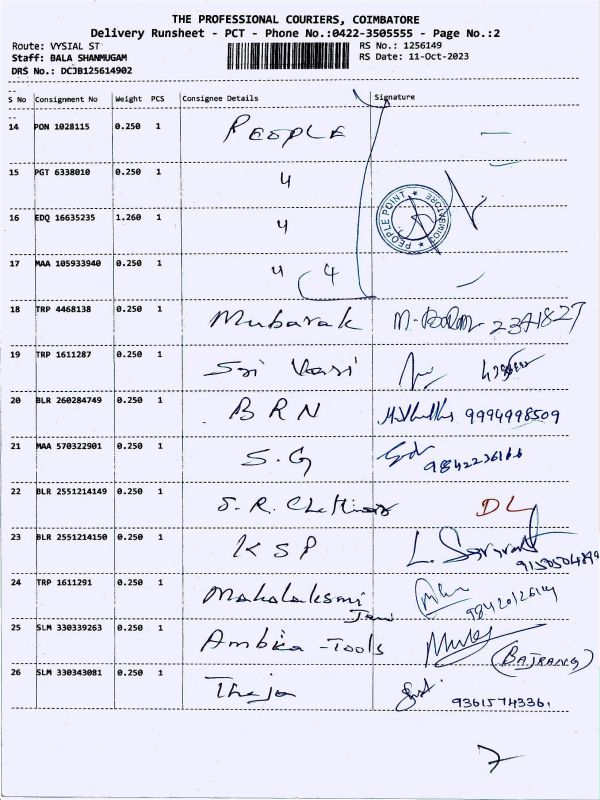 THE PROFESSIONAL COURIERS, COIMBATORE
Delivery Runsheet - PCT - Phone No.:0422-3505555 - Page No.:2
Route: VYSIAL ST RS No.: 1256149
Staff: BALA SHANMUGAM RS Date: 11-Oct-2023
DRS No.: DCJB125614902
S No Consignment No Weight PCS Consignee Details Signature
14 PON 1028115 0.250 1 PEOPLE
15 PGT 6338010 0.250 1 4
16 EDQ 16635235 1.260 1 4
PEOPLE POINT COIMBATORE
17 MAA 105933940 0.250 1 4 4
18 TRP 4468138 0.250 1 Mubarak 2341827
19 TRP 1611287 0.250 1 Sri Vasi
20 BLR 260284749 0.250 1 BRN 9994998509
21 MAA 570322901 0.250 1 S.G
22 BLR 2551214149 0.250 1 S.R. Chettiar DL
23 BLR 2551214150 0.250 1 KSP L.
24 TRP 1611291 0.250 1 Mahalaksmi
25 SLM 330339263 0.250 1 Ambika -Tools (BAJRANG)
26 SLM 330343081 0.250 1 Theja 93615743361
7